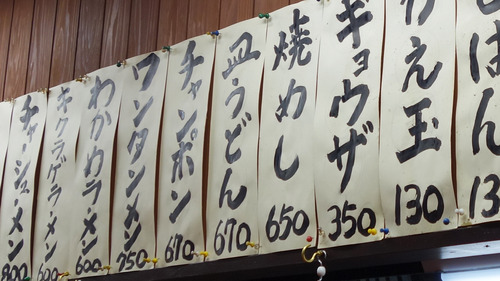 はん
13
かえ玉 130
ギョウザ 350
焼めし 650
皿うどん 670
チャンポン 670
ワンタンメン 750
わかめラーメン 600
キクラゲラーメン 600
チャーシューメン